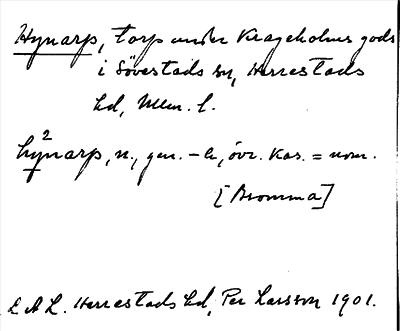 Hynarp, torp under Krageholms gods
i Sövestads sn, Herrestads
hd, Mlm. l.
hy²narp, n., gen. -s, övr. kas. = nom.
[Bromma]
L A L. Herrestads hd, Per Larsson 1901.